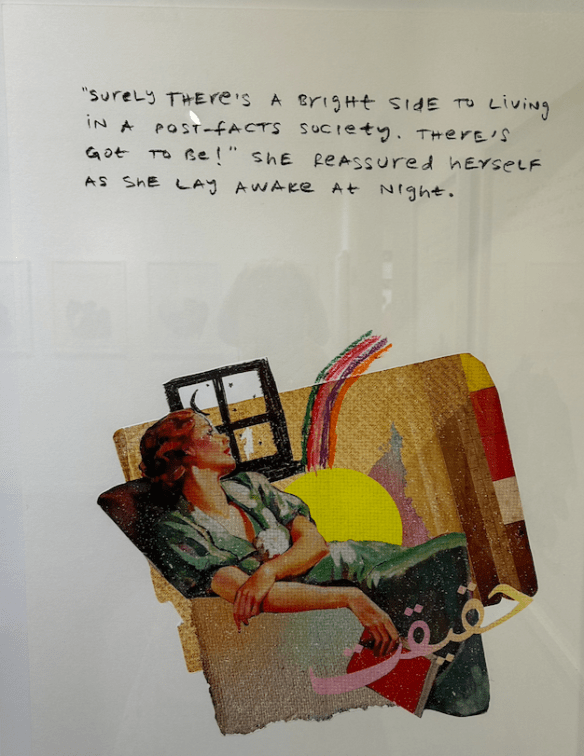 "Surely there's a bright side to living
in a post-facts society. There's
got to be!" she reassured herself
as she lay awake at night.
حقیقت